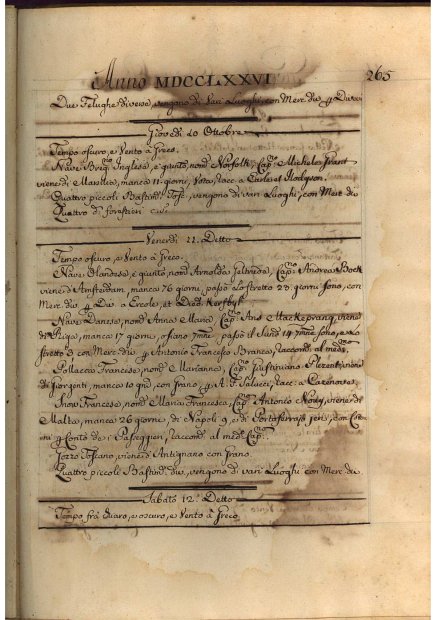 Anno MDCCLXXVI 265
Due Felughe diverse, vengono di Vari Luoghi con Merc. div.
Giovedì 10 Ottobre
Tempo oscuro, e Vento à Greco.
Nave Inglese, è giunto, nom.ᵒ Norfolk, Cap.ⁿᵒ Grant
viene di Marsilia, manca 11 giorni, Vota, racc. a Earle et Hodgson.
Quattro piccoli Bastim.ᵗⁱ Tosc. vengono di vari Luoghi, con Merc. div.
Quattro di forestieri
Venerdì 11. Detto
Tempo oscuro, e Vento à Greco.
Nave Olandese, è giunto, nom.ᵒ Arnolda Cap.ⁿᵒ Andrea Boek
viene d'Amsterdam, manca 76 giorni, passò lo stretto 23. giorni sono, con
Merc. div. a Ercole, et Died.
Nave Danese, nom.ᵒ Anna Maria, Cap.ⁿᵒ Ans Mackeprang, viene
di Riga, manca 17 giorni, passò il Sund 14
stretto con Merc. div. Antonio Francesco Branca, raccom. al med.ᵐᵒ
Pollacca Francese, nom.ᵒ Marianna, Cap.ⁿᵒ viene
di Giorgenti, manca 10 gio, con Grano, A. F. Salucci, racc. a
Snow Francese, nom.ᵒ Maria Francesca, Cap.ⁿᵒ Antonio viene di
Malta, manca 26 giorni, di Napoli 9, e di Portoferrajo jeri, con
Conto de i Passeggieri, raccom. al med.ᵒ Cap.ⁿᵒ
Gozzo Toscano, viene d'Antignano con Grano.
Quattro piccoli Bastim. div. vengono di vari Luoghi con Merc. div.
Sabato 12. Detto
Tempo frà chiaro, e oscuro, e Vento à Greco